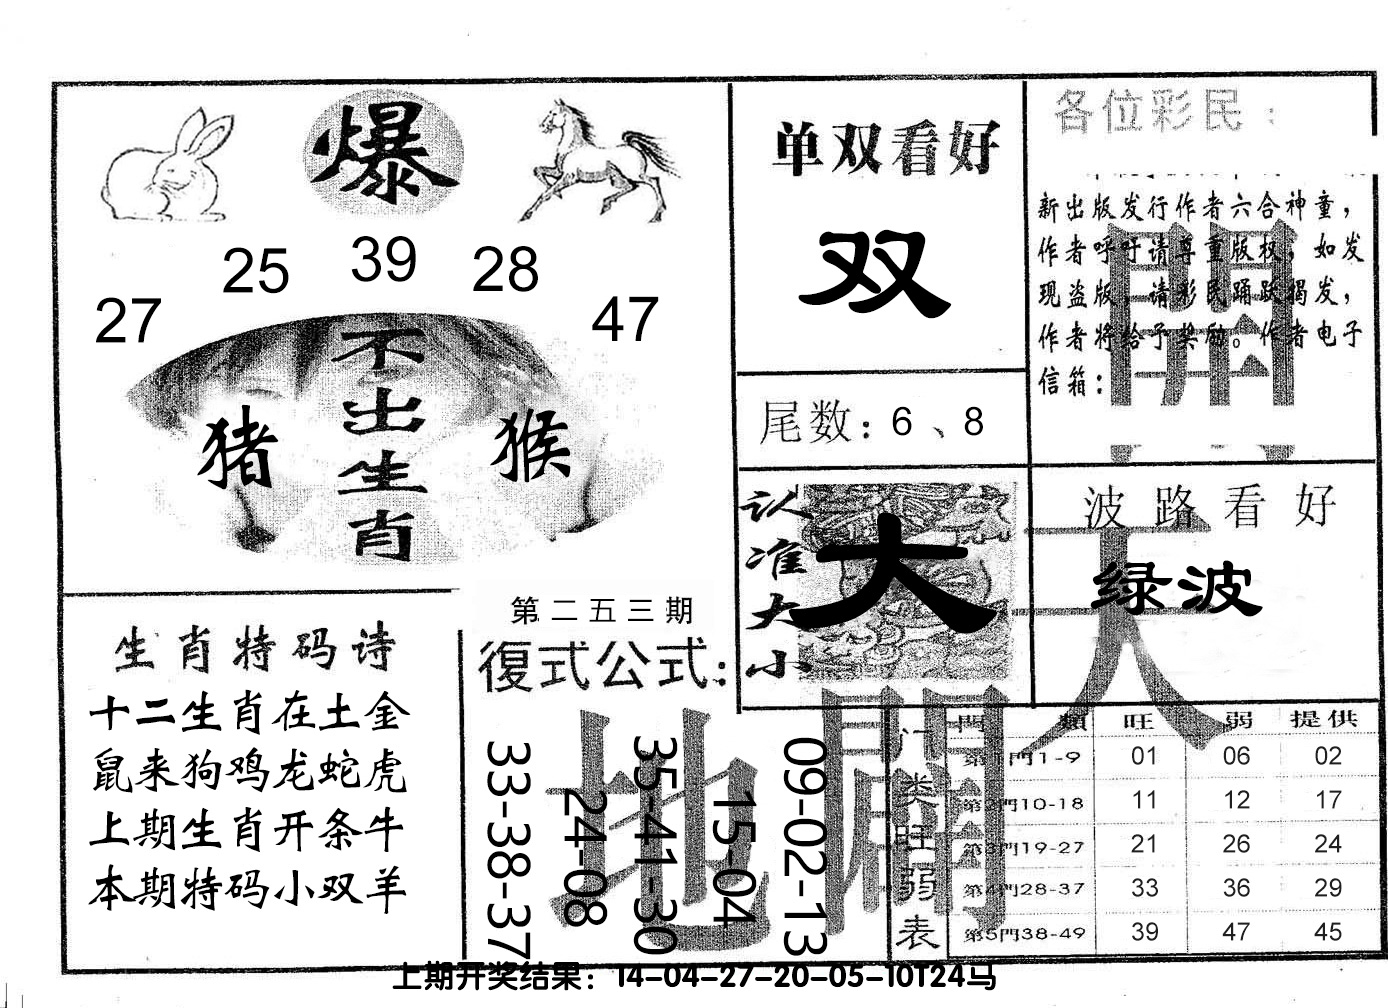 爆
25 39 28
27 47
不出生肖
猪 猴
单双看好
双
尾数：6、8
各位彩民：
新出版发行作者六合神童，
作者呼吁请尊重版权，如发
现盗版，请彩民踊跃揭发，
作者将给予奖励。作者电子
信箱：
認准大小
大
波路看好
绿波
天
開
地
闢
生肖特码诗
十二生肖在土金
鼠来狗鸡龙蛇虎
上期生肖开条牛
本期特码小双羊
第二五三期
復式公式：
33-38-37
24-08
35-41-30
15-04
09-02-13
门类旺弱表
門類 旺 弱 提供
第1門1-9 01 06 02
第2門10-18 11 12 17
第3門19-27 21 26 24
第4門28-37 33 36 29
第5門38-49 39 47 45
上期开奖结果：14-04-27-20-05-10T24马